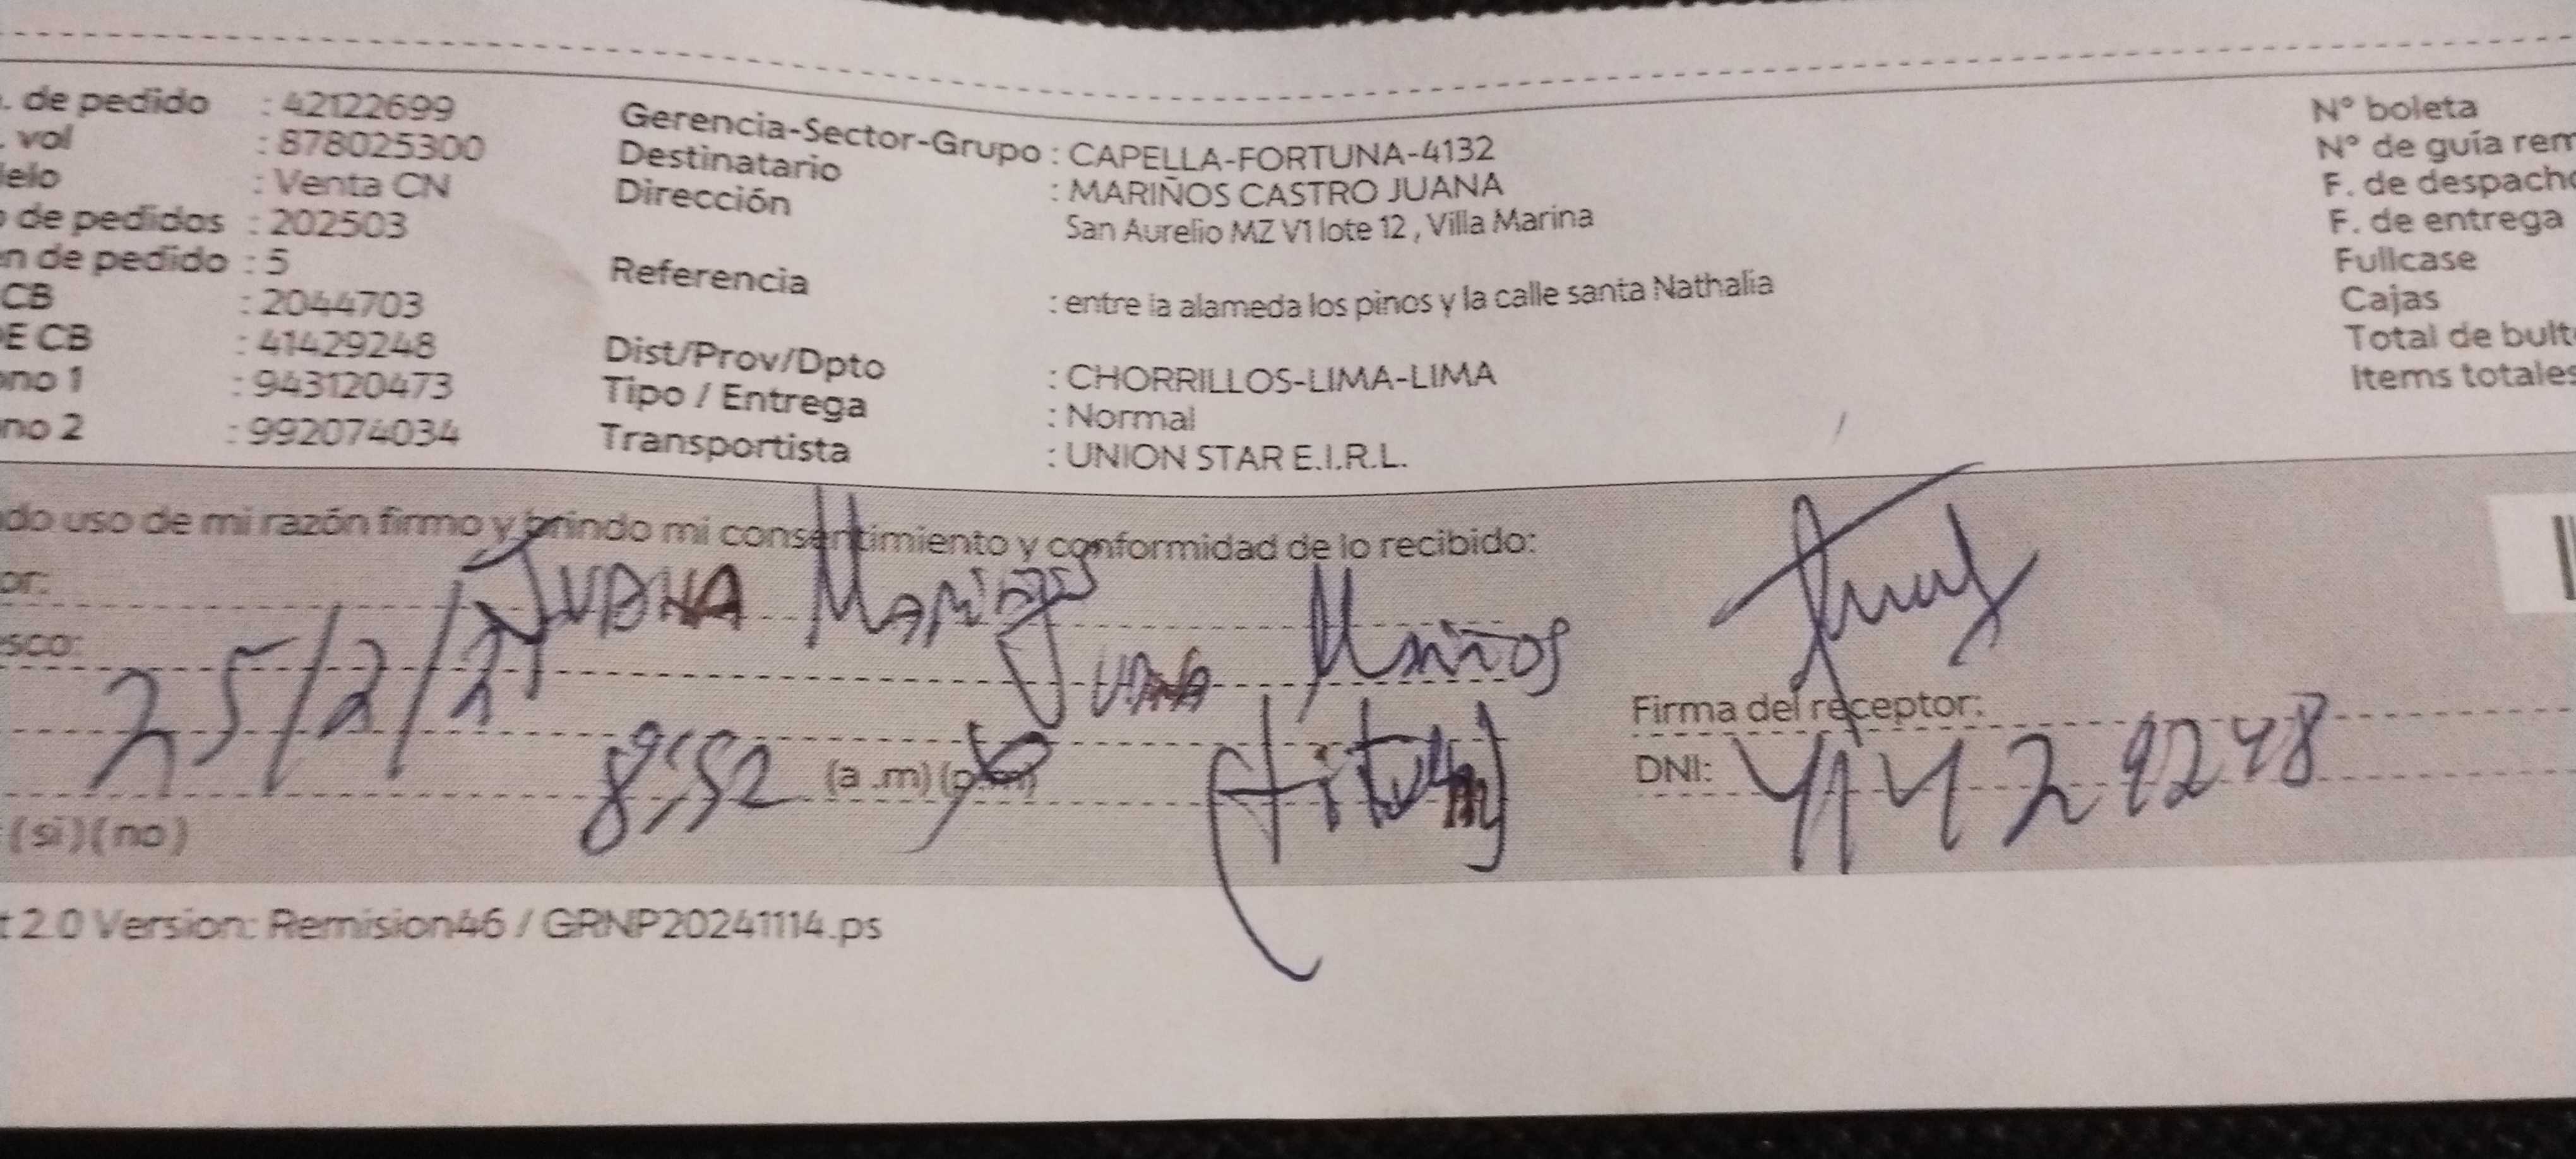 . de pedido : 42122699
. vol : 878025300
elo : Venta CN
o de pedidos : 202503
n de pedido : 5
CB : 2044703
E CB : 41429248
ono 1 : 943120473
no 2 : 992074034
Gerencia-Sector-Grupo : CAPELLA-FORTUNA-4132
Destinatario : MARIÑOS CASTRO JUANA
Dirección San Aurelio MZ V1 lote 12 , Villa Marina
Referencia : entre la alameda los pinos y la calle santa Nathalia
Dist/Prov/Dpto : CHORRILLOS-LIMA-LIMA
Tipo / Entrega : Normal
Transportista : UNION STAR E.I.R.L.
N° boleta
N° de guía rem
F. de despacho
F. de entrega
Fullcase
Cajas
Total de bult
Items totales
do uso de mi razón firmo y brindo mi consentimiento y conformidad de lo recibido:
or: JUANA Mariños
sco: Juana
25/2/2
8:52 (a .m) (p.m)
(si) (no)
Firma del receptor:
DNI: 41429248
t 2.0 Version: Remision46 / GRNP20241114.ps